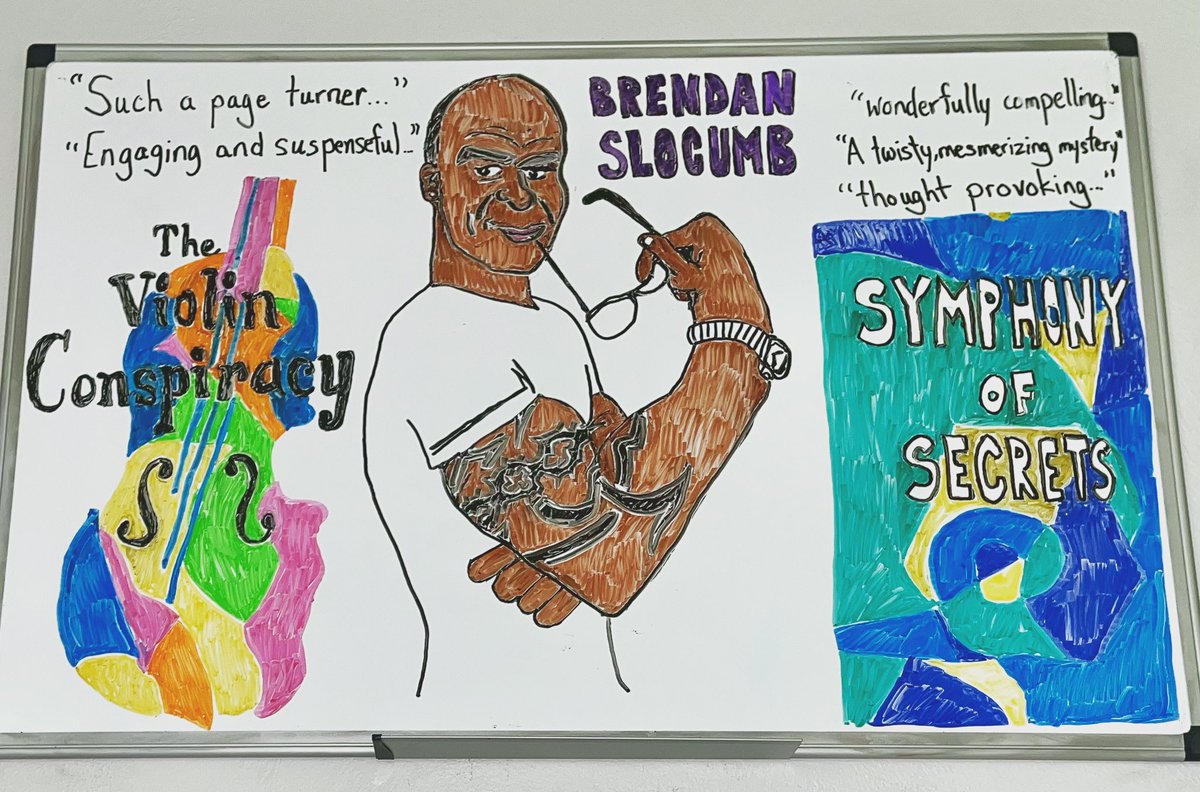 "Such a page turner..."
"Engaging and suspenseful..."
The
Violin
Conspiracy
BRENDAN
SLOCUMB
"wonderfully compelling..."
"A twisty, mesmerizing mystery"
"thought provoking..."
SYMPHONY
OF
SECRETS